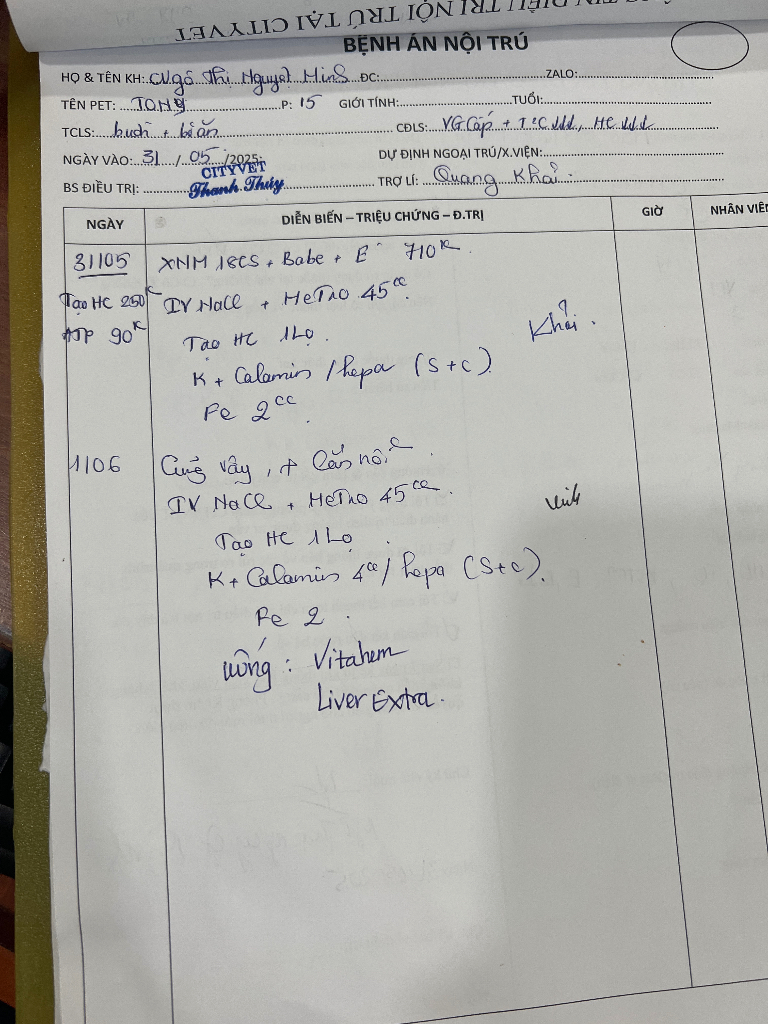 BỆNH ÁN NỘI TRÚ
HỌ & TÊN KH: Ngô Thị Nguyệt Minh ĐC: ZALO:
TÊN PET: TONY P: 15 GIỚI TÍNH: TUỔI:
TCLS: buồn + bỏ ăn CĐLS: VG Cấp + T.C HC
NGÀY VÀO: 31 / 05 /2025: DỰ ĐỊNH NGOẠI TRÚ/X.VIỆN:
CITYVET
BS ĐIỀU TRỊ: Thanh Thúy TRỢ LÍ: Quang Khải
NGÀY DIỄN BIẾN – TRIỆU CHỨNG – Đ.TRỊ GIỜ NHÂN VIÊN
31/05 XNM 18CS + Babe + E 710K
Tạo HC 250K IV NaCl + MeTro 45cc
ATP 90K Tạo HC 1 Lọ. Khải.
K + Calamin / hepa (S+C)
Fe 2cc.
1/06 Cũng vậy, +
IV NaCl + MeTro 45cc.
Tạo HC 1 Lọ
K + Calamin 4cc / hepa (S+C).
Fe 2.
uống: Vitahem
Liver Extra.